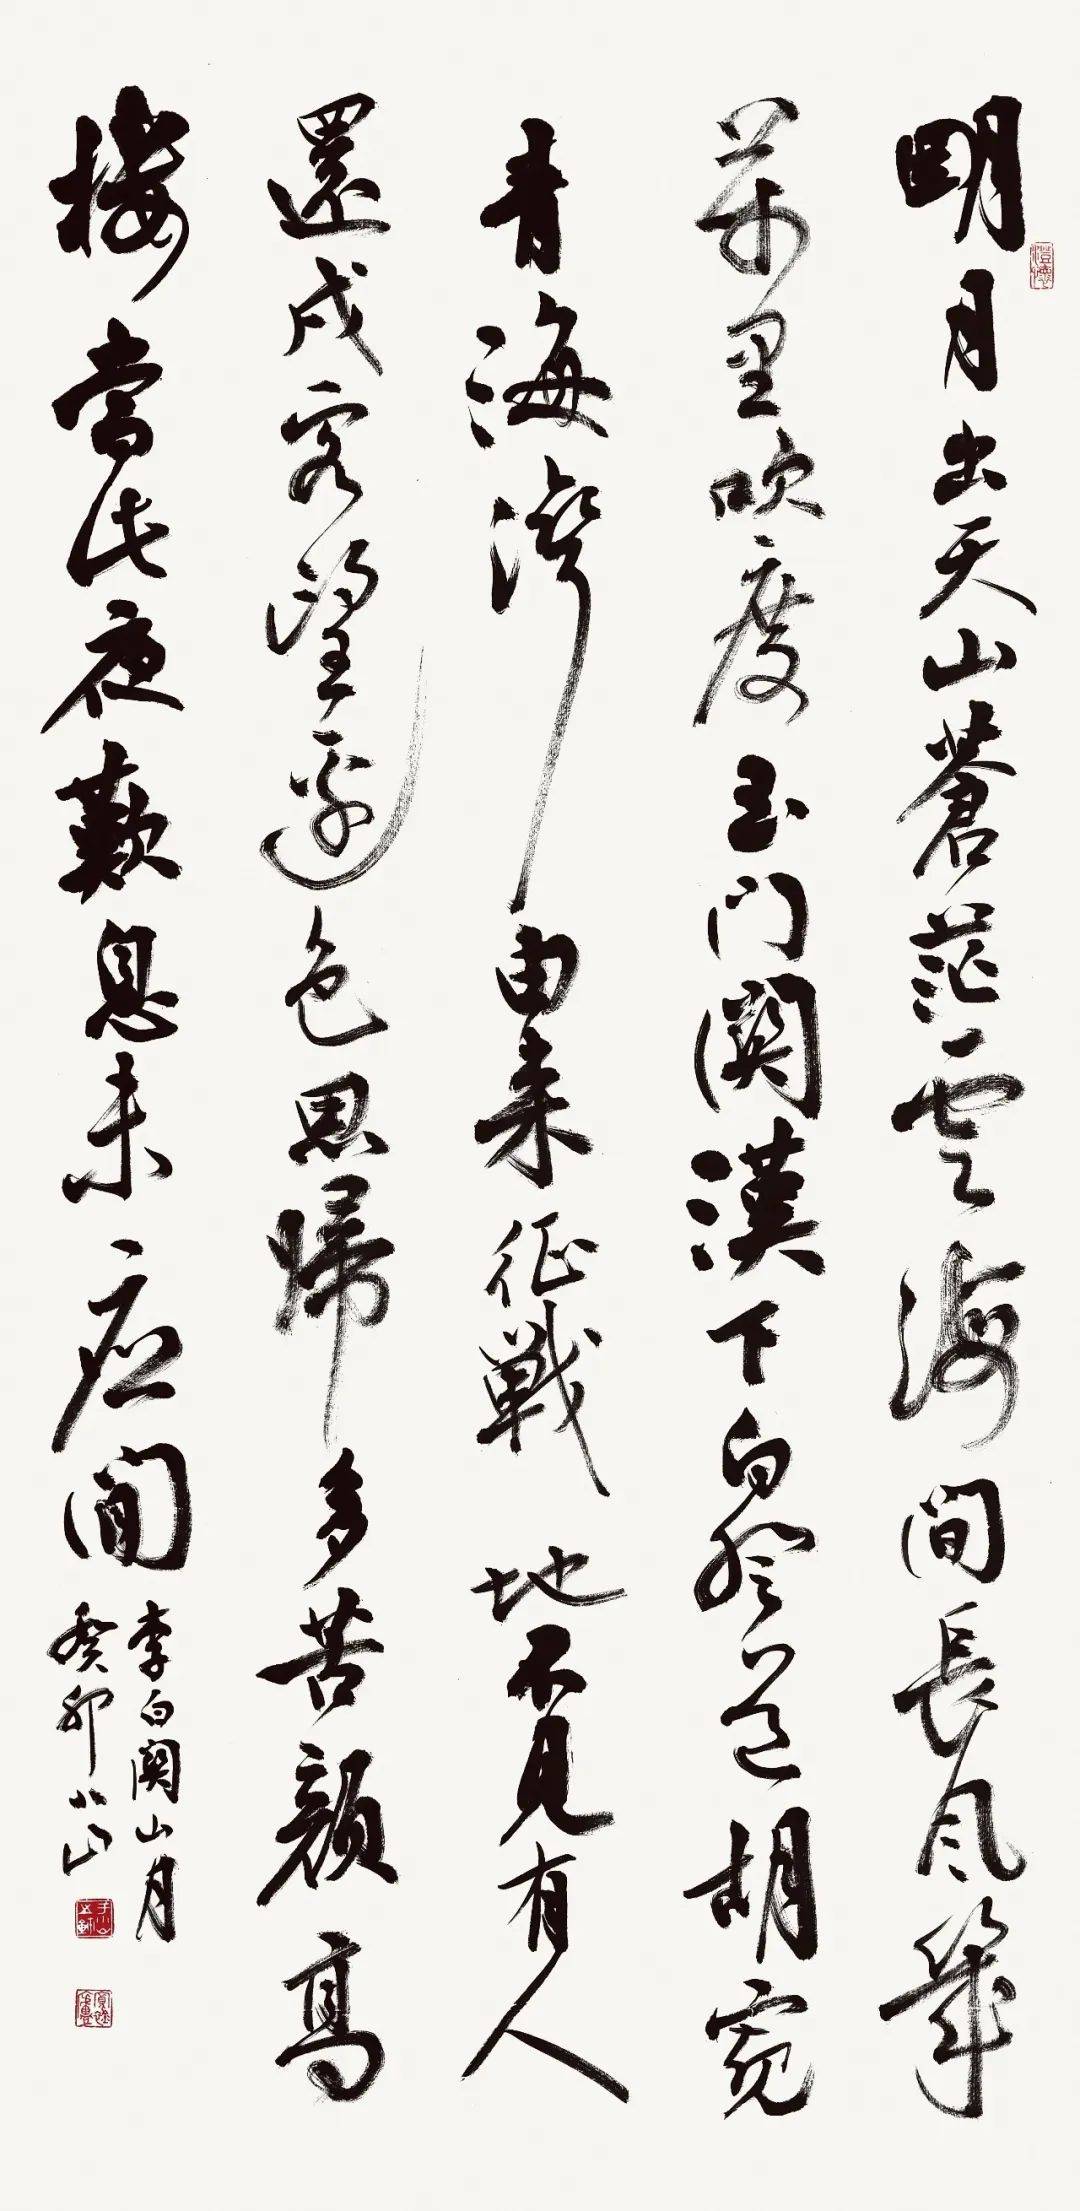 明月出天山蒼茫雲海間長風幾
萬里吹度玉門關漢下白登道胡窺
青海灣由來征戰地不見有人
還戍客望邊色思歸多苦顏高
樓當此夜歎息未應閒
李白關山月
癸卯